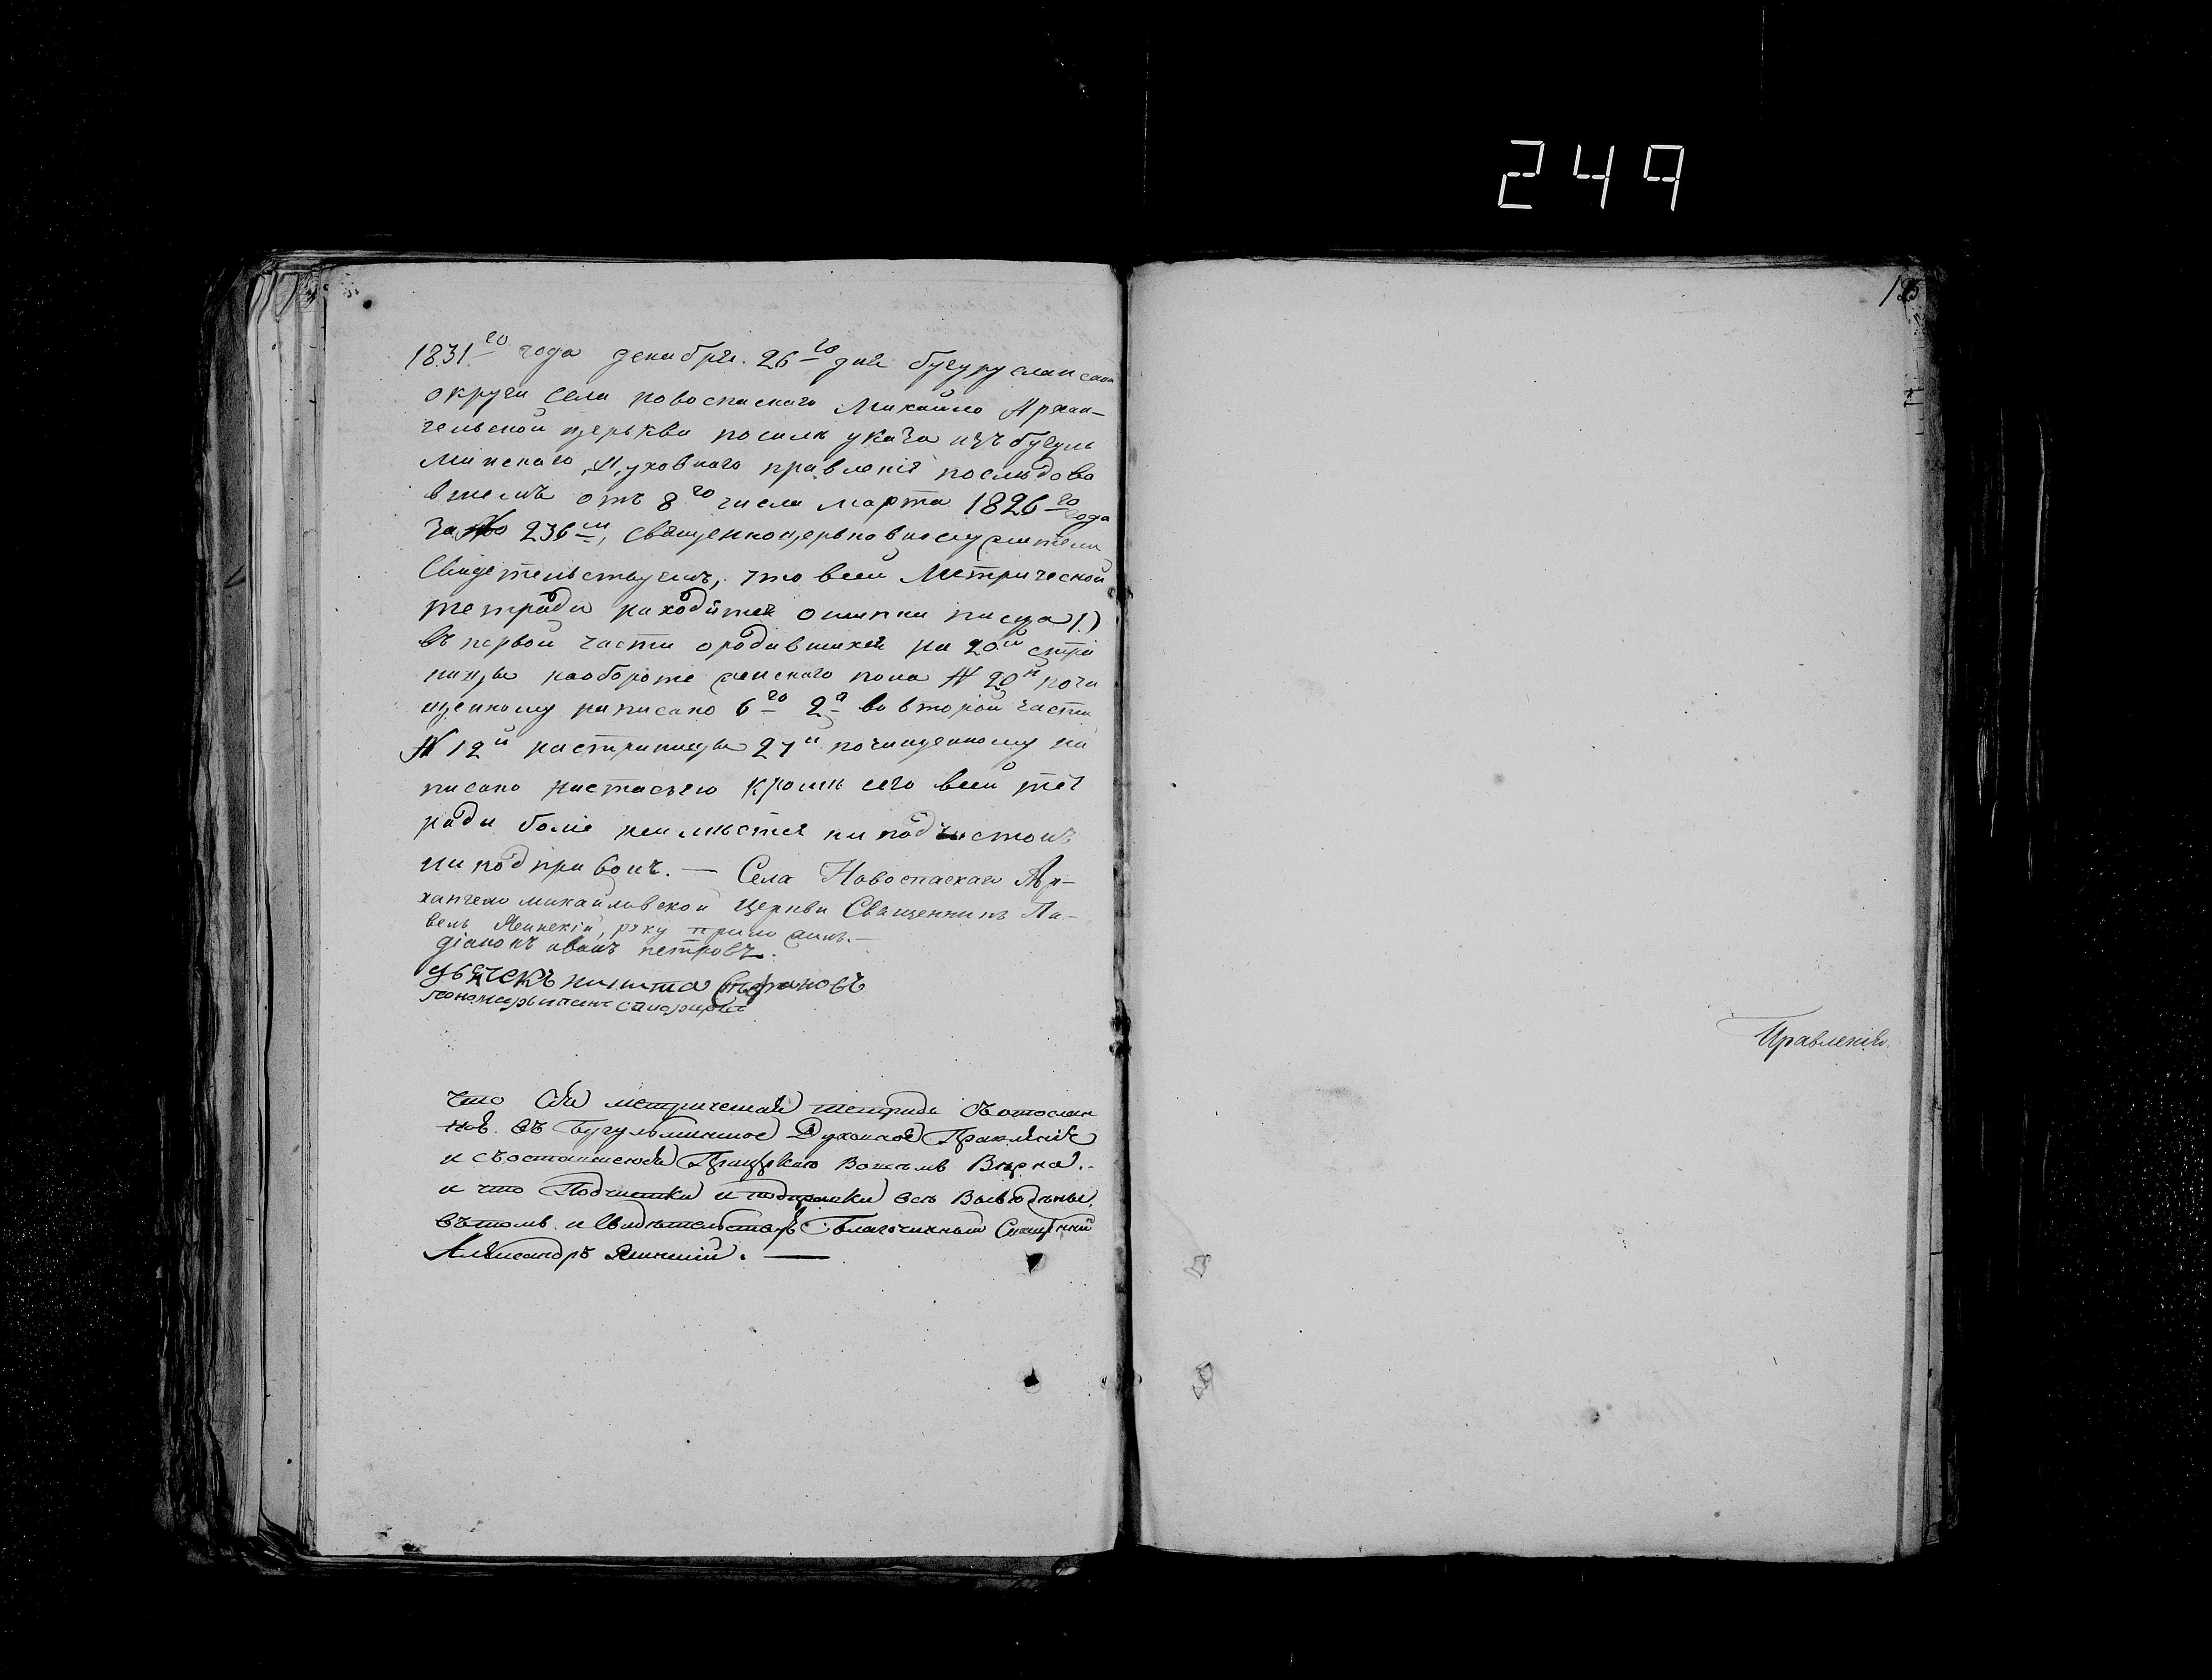 249
1831го года декабря. 26го дня бугурусланской
округи села новоспаскаго Михайло Архан-
гельской церькви посиле указа изъ бугуль
минскаго Духовнаго правления последова
вшемъ отъ 8го числа марта 1826го года
за № 236м, священноцерьковнослужители
Свидетельствуемъ, что всей Метрической
тетради находится ошипки писца 1)
въ первой части ородившихся на 20й стра
ницы наобороте женского пола № 20й почи
щенному написано 6го 2а во второй части
№ 12й настраницы 27й почищенному на
писано настасьею кроме сего всей тет
ради более неимеется ни подчистокъ
ни под правокъ. — Села Новоспаскаго Ар-
хангело михайловской Церкви Священникъ Па-
велъ Ясинскій, руку приложилъ. —
діаконъ иванъ петровъ.
дьячекъ никита Стефановъ
пономарь
что Сія метрическая тетрадь съ отослан
ной въ Бугульминское Духовное Правленіе
и съ оставшеюся При Церкви вовсемъ Верна. -
и что Подчистки и подправки все
въ томъ и Свидетельствую Благочинный Священник
Александръ Ясинский. —
Правленія